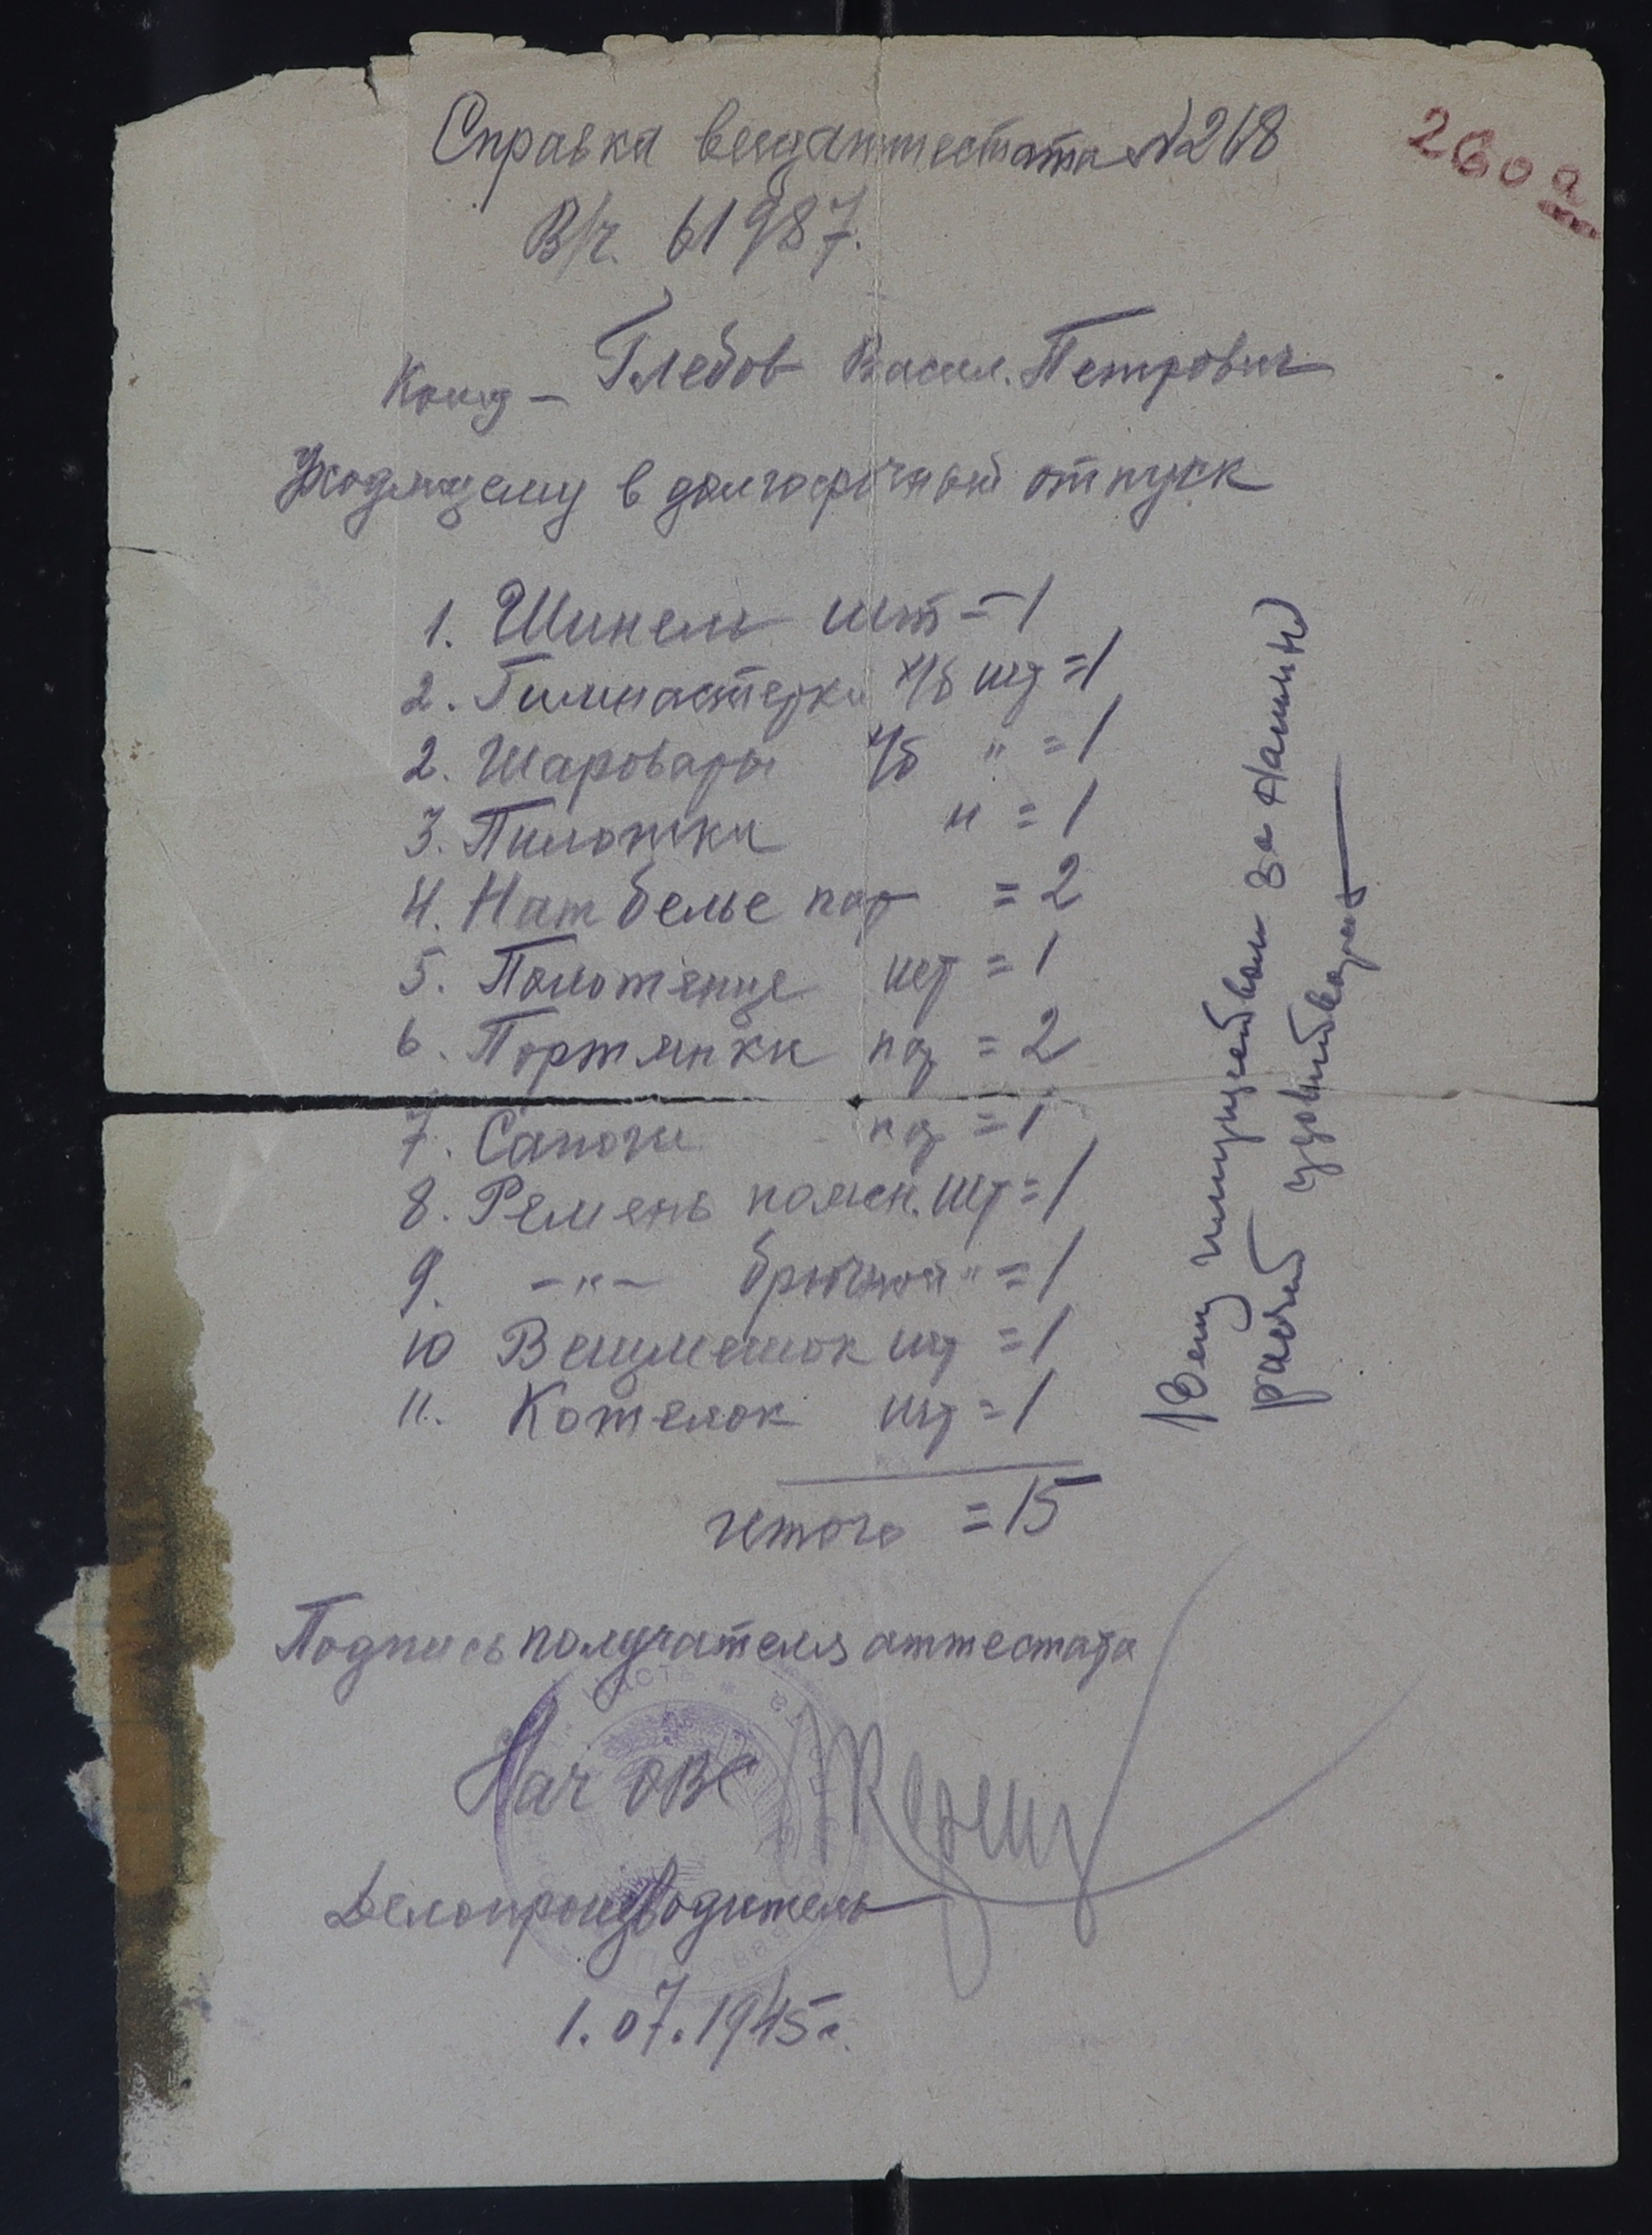 Справка вещаттестата № 268
260 а
В/ч. 61987.
Кому – Глебов Васил. Петрович
Уходящему в долгосрочный отпуск
1. Шинель шт = 1
2. Гимнастерки х/б шт = 1
2. Шаровары х/б " = 1
3. Пилотки " = 1
4. Нат белье пар = 2
5. Полотенце шт = 1
6. Портянки пар = 2
7. Сапоги пар = 1
8. Ремень поясн. шт = 1
9. –"– брючной " = 1
10 Вещмешок шт = 1
11. Котелок шт = 1
итого = 15
Вещ имуществом за
расчет удовлтворен
Подпись получателя аттестата
Нач ОВС
Делопроизводитель
1.07.1945г.